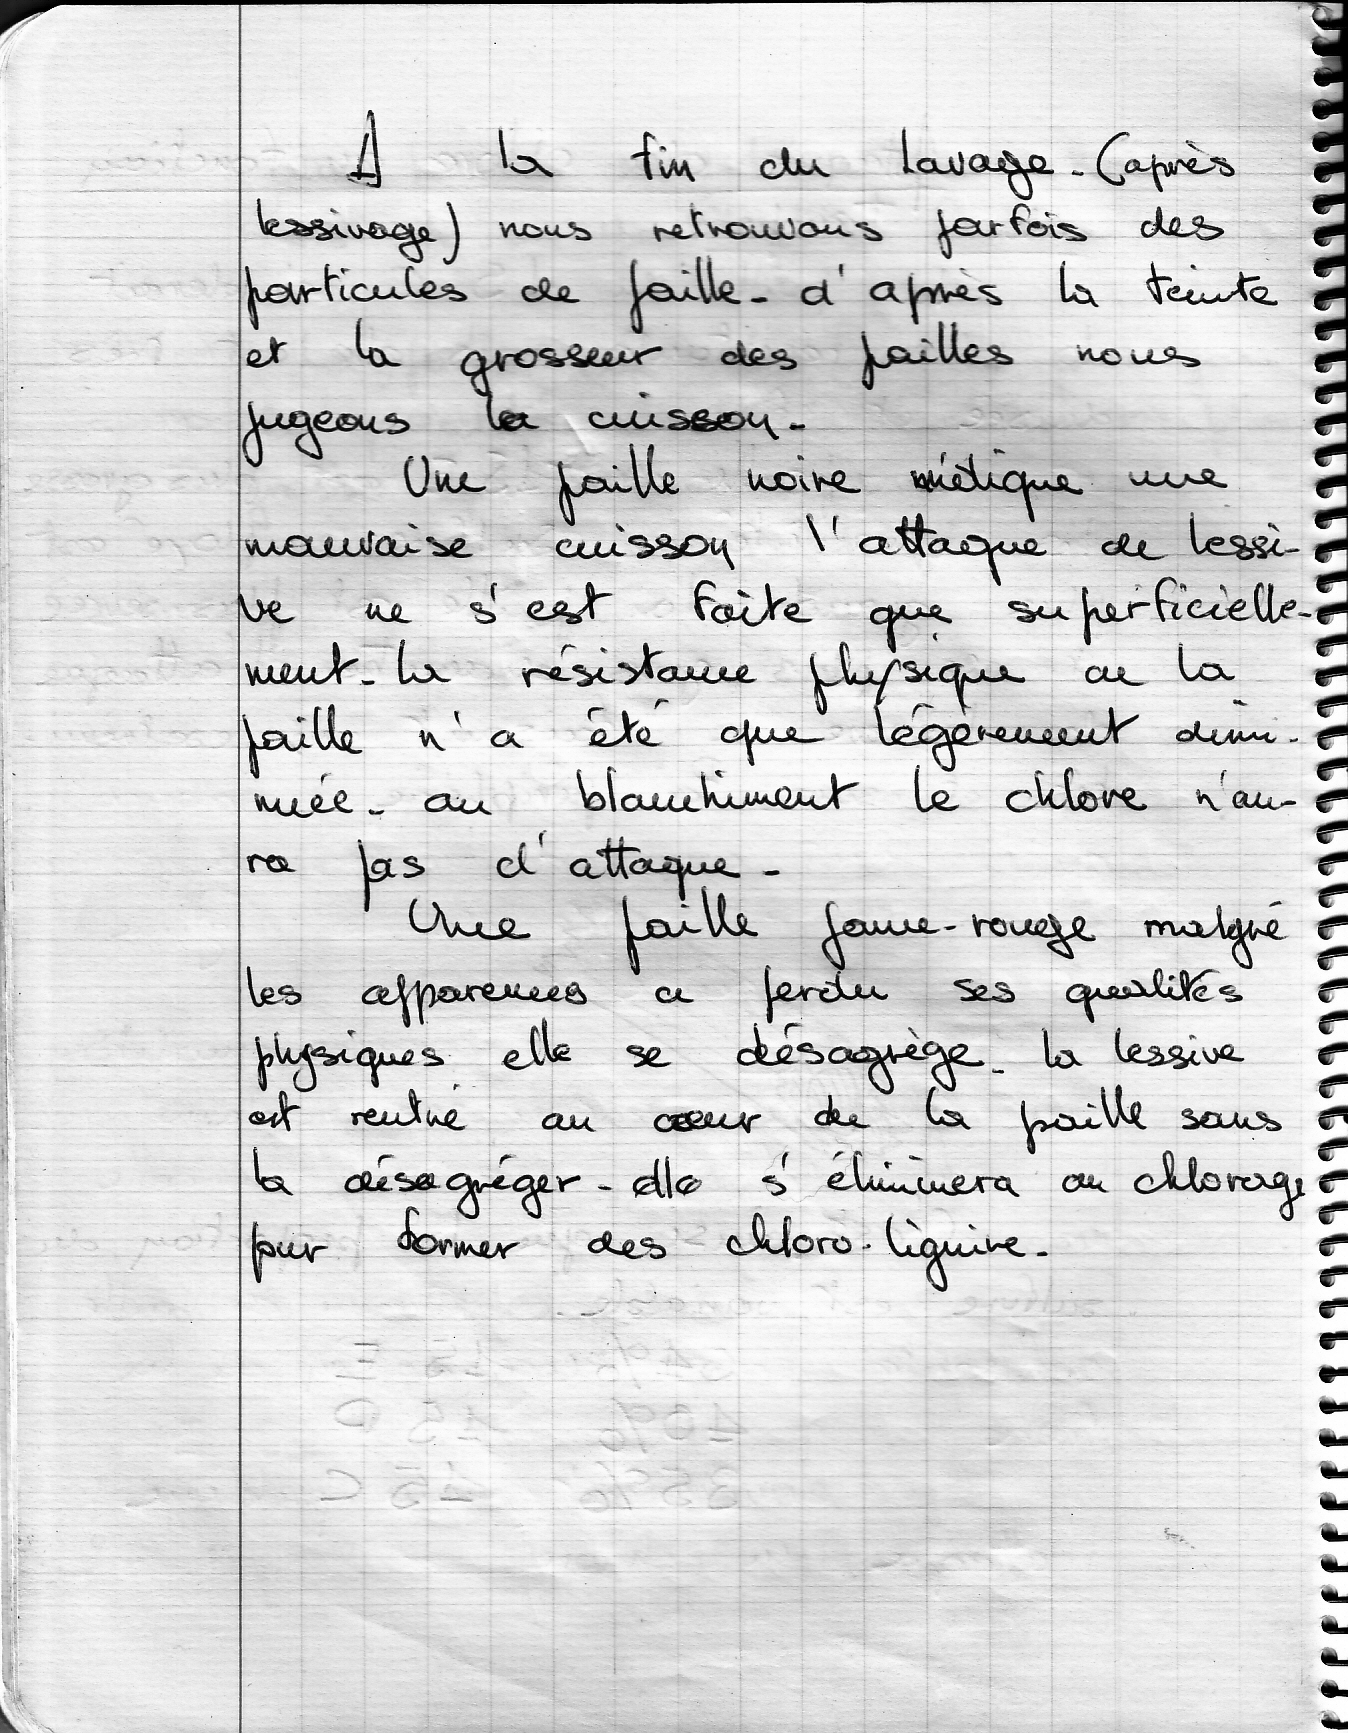 A la fin du lavage - (après
lessivage) nous retrouvons parfois des
particules de paille - d'après la teinte
et la grosseur des pailles nous
jugeons la cuisson -
Une paille noire une
mauvaise cuisson l'attaque de lessi-
ve ne s'est faite que superficielle-
ment - la résistance physique de la
paille n'a été que légèrement dimi-
nuée - au blanchiment le chlore n'au-
ra pas d'attaque -
Une paille jaune-rouge malgré
les apparences a perdu ses qualités
physiques elle se désagrège - la lessive
est rentré au cœur de la paille sans
la désagréger - elle s'éliminera au chlorage
pur former des chloro-lignine -